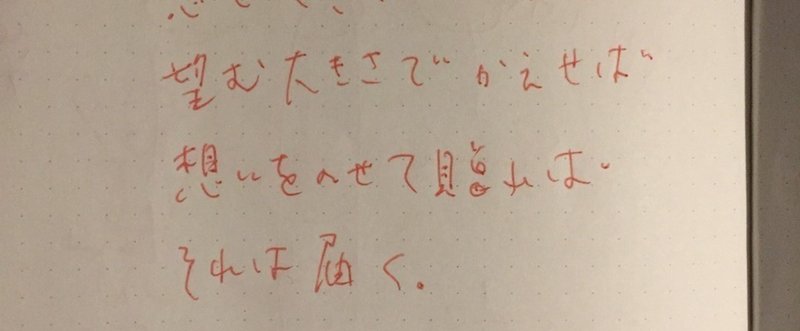 望む大きさでかえせば
想いをのせて贈れば
それは届く.